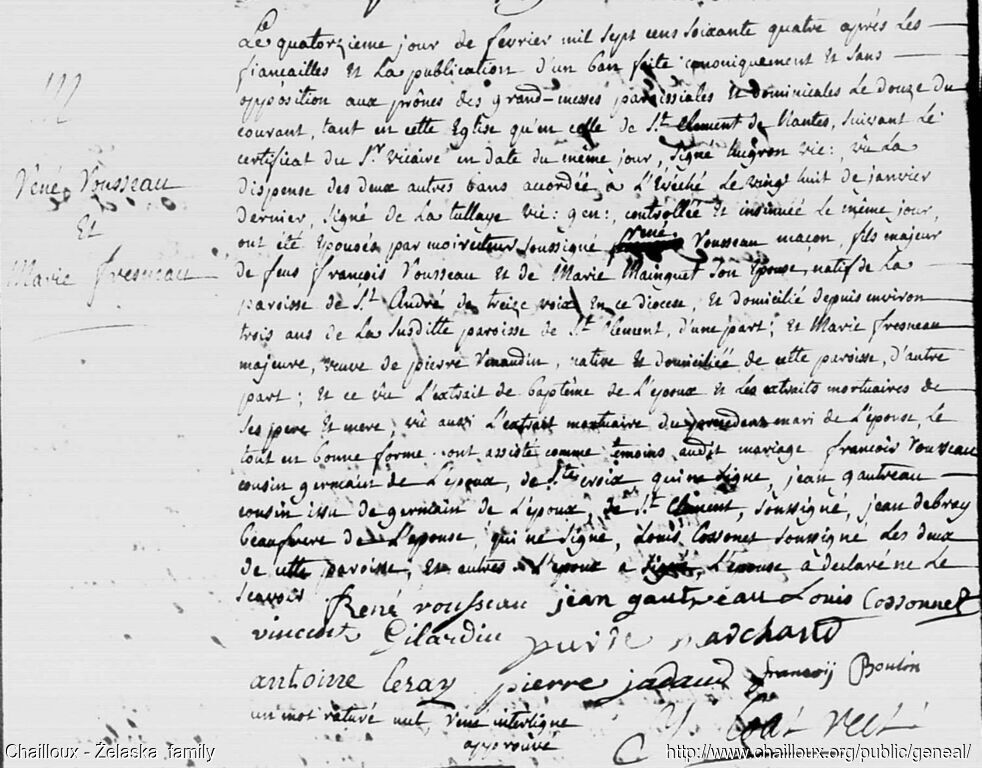 René Rousseau
Et
Marie fresneau
Le quatorzieme jour de fevrier mil sept cens soixante quatre après Les
fiancailles Et La publication d'un ban faite canoniquement Et sans
opposition aux prônes des grand-messes paroissiales Et dominicales Le douze du
courant, tant en cette Eglise qu'en celle de St. Clement de Nantes, suivant Le
certificat du Sr. vicaire en date du même jour, signé vic: , vû La
dispense des deux autres bans accordée à L'Evêché Le vingt huit de janvier
dernier, signé de La tullaye vic: gen: , controllée Et insinuée Le même jour,
ont été Epousés par moi recteur soussigné René Rousseau maçon, fils majeur
de feus françois Rousseau Et de Marie Mainguet son Epouse, natif de La
paroisse de St. André de treize voix En ce diocese, Et domicilié depuis environ
trois ans de La susditte paroisse de St. Clement, d'une part; Et Marie fresneau
majeure, veuve de pierre Renaudin, native Et domiciliée de cette paroisse, d'autre
part; Et ce vû L'extrait de baptême de L'epoux Et Les extraits mortuaires de
ses pere Et mere, vû aussi L'extrait mortuaire du precedent mari de L'epouse, Le
tout en bonne forme. ont assisté comme temoins audit mariage françois Rousseau
cousin germain de L'epoux, de Ste. croix qui ne signe, jean gautreau
cousin issu de germain de L'epoux, de St. Clement, soussigné, jean debray
beaufrere de L'epouse, qui ne signe, Louis Cossonet soussigné Les deux
de cette paroisse, Et autres. L'epoux a signé, L'epouse a declaré ne Le
scavoir.
René rousseau jean gautreau Louis Cossonnet
vincent Gilardin pierre marchand
antoine Ceray pierre jadaud françois Boutin
un mot raturé nul, René interligne
approuvé
Chailloux - Želaska family
http://www.chailloux.org/public/geneal/